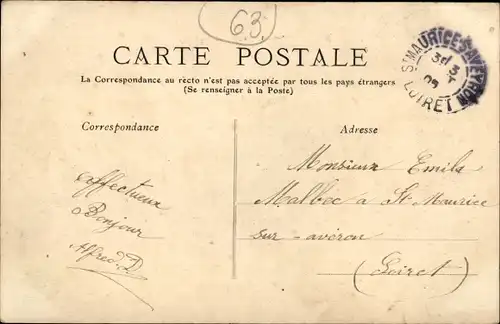 63
CARTE POSTALE
La Correspondance au recto n'est pas acceptée par tous les pays étrangers
(Se renseigner à la Poste)
ST MAURICE-S-AVEYRON
LOIRET
Correspondance
Adresse
affectueux
Bonjour
Alfred. D
Monsieur Emile
Malbec à St Maurice
sur-avéron
(Loiret)